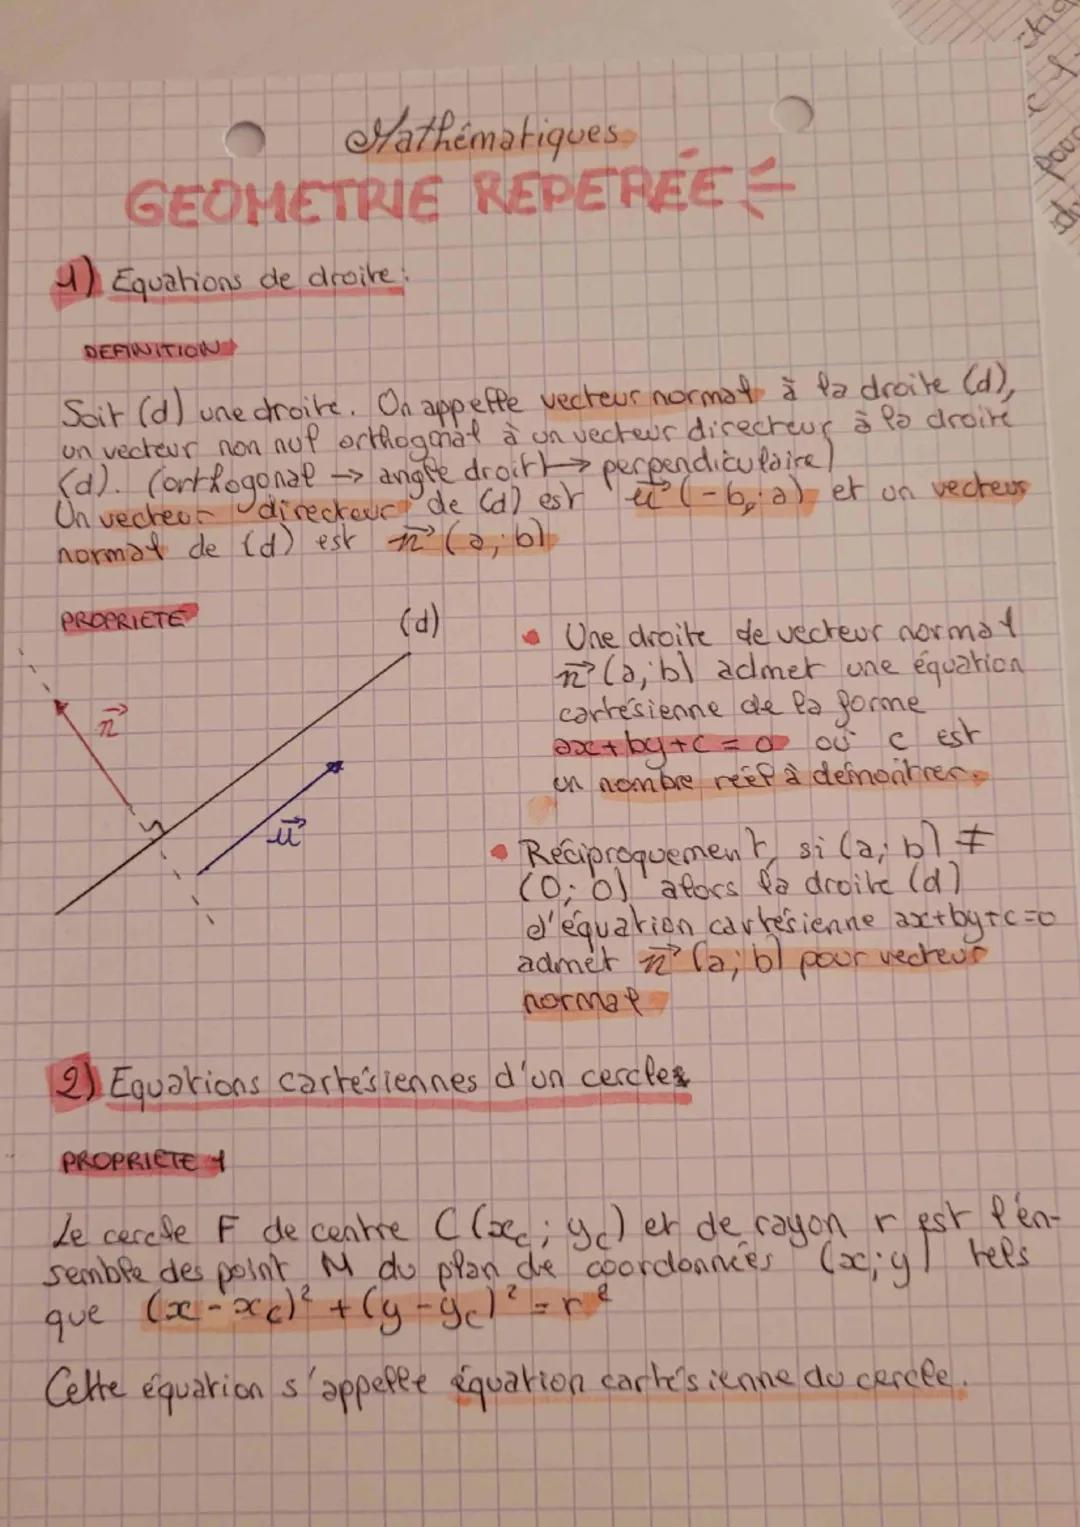 Mathématiques
GEOMETRIE REPEREÉ
1) Equations de droite :
DEFINITION
Soit (d) une droite. On appelle vecteur normal à la droite (d),
un vecteur non nul orthogonal à un vecteur directeur à la droite
(d). (orthogonal → angle droit → perpendiculaire)
Un vecteur directeur de (d) est u⃗ (-b ; a) et un vecteur
normal de (d) est n⃗ (a ; b)
PROPRIETE
(d)
n⃗
u⃗
• Une droite de vecteur normal
n⃗ (a ; b) admet une équation
cartésienne de la forme
ax + by + c = 0 où c est
un nombre réel à démontrer.
• Réciproquement, si (a ; b) ≠
(0 ; 0) alors la droite (d)
d'équation cartésienne ax+by+c=0
admet n⃗ (a ; b) pour vecteur
normal
2) Equations cartésiennes d'un cercle
PROPRIETE 1
Le cercle F de centre C (xc ; yc) et de rayon r est l'en-
semble des point M du plan de coordonnées (x ; y) tels
que (x - xc)² + (y - yc)² = r²
Cette équation s'appelle équation cartésienne du cercle.